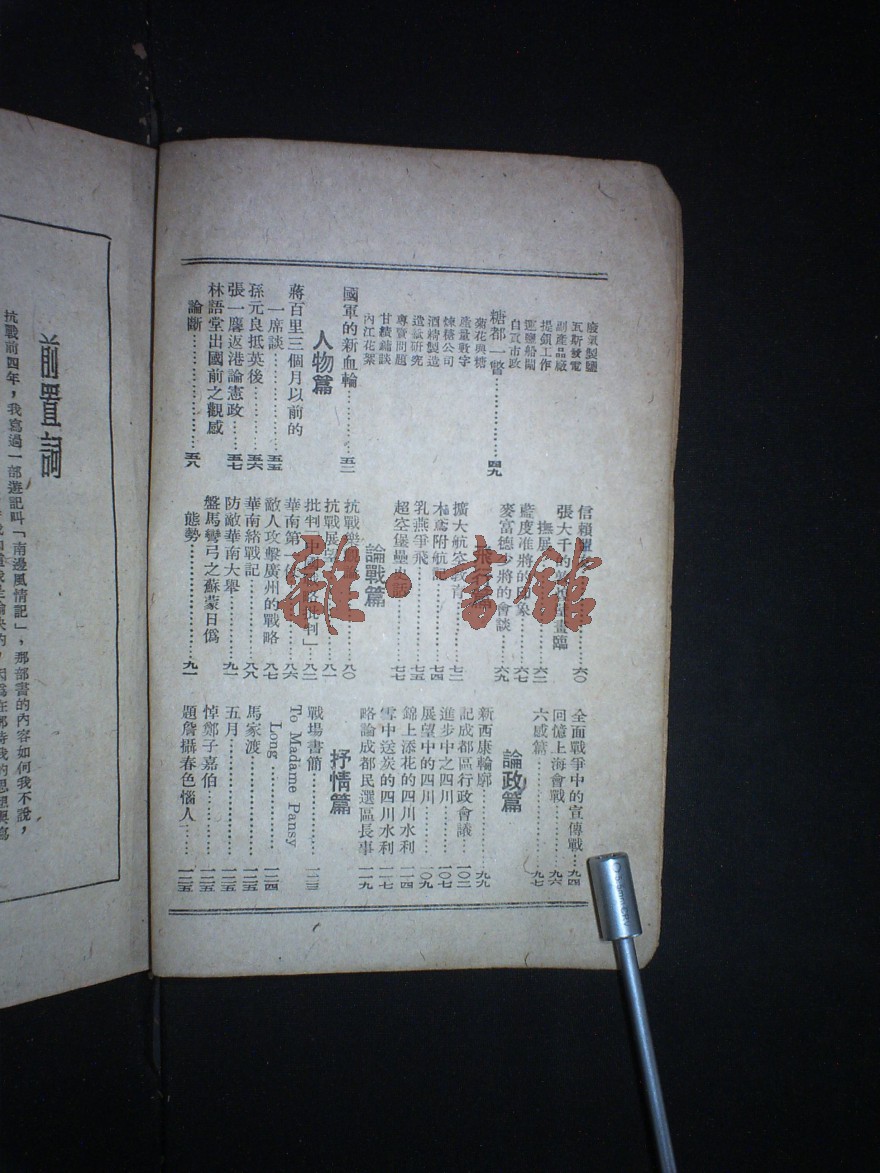 廢氣製鹽
瓦斯發電
副產品廠
提鋇工作
運鹽船閘
自貢市政
糖都一瞥…………四九
菊花與糖
產量數字
煉糖公司
酒精製造
遺蔗研究
專賣問題
甘蔗
內江花絮
國軍的新血輪…………五二
人物篇
蔣百里三個月以前的
一席談…………五五
孫元良抵英後…………五六
張一麐返港論憲政…………五七
林語堂出國前之觀感
論斷…………五八
信賴…………六〇
張大千的
撫展…………六二
藍度准將的印象…………六七
麥富德少將的會談…………六九
飛行篇
擴大航空教育…………七二
木鳶附航…………七四
乳燕爭飛…………七五
超空堡壘…………七七
論戰篇
抗戰…………八〇
抗戰展望…………八一
批判「中國…批判」…………八二
華南第一…………八六
敵人攻擊廣州的戰略…………八七
華南緒戰記…………八八
防敵華南大舉…………九一
盤馬彎弓之蘇蒙日僞
態勢…………九一
全面戰爭中的宣傳戰…………九四
回憶上海會戰…………九六
六感篇…………九七
論政篇
新西康輪廓…………九九
記成都區行政會議…………一〇二
進步中之四川…………一〇七
展望中的四川…………一〇九
錦上添花的四川水利…………一一四
雪中送炭的四川水利…………一一七
略論成都民選區長事…………一一九
抒情篇
戰場書簡…………一二三
To Madame Pansy
Long…………一二四
馬家渡…………一二五
五月…………一二五
悼鄭子嘉伯…………一二五
題詹攝春色惱人…………一二五
前置詞
抗戰前四年，我寫過一部遊記叫「南邊風情記」，那部書的內容如何我不說，
雜·書館
5.5mm CRV